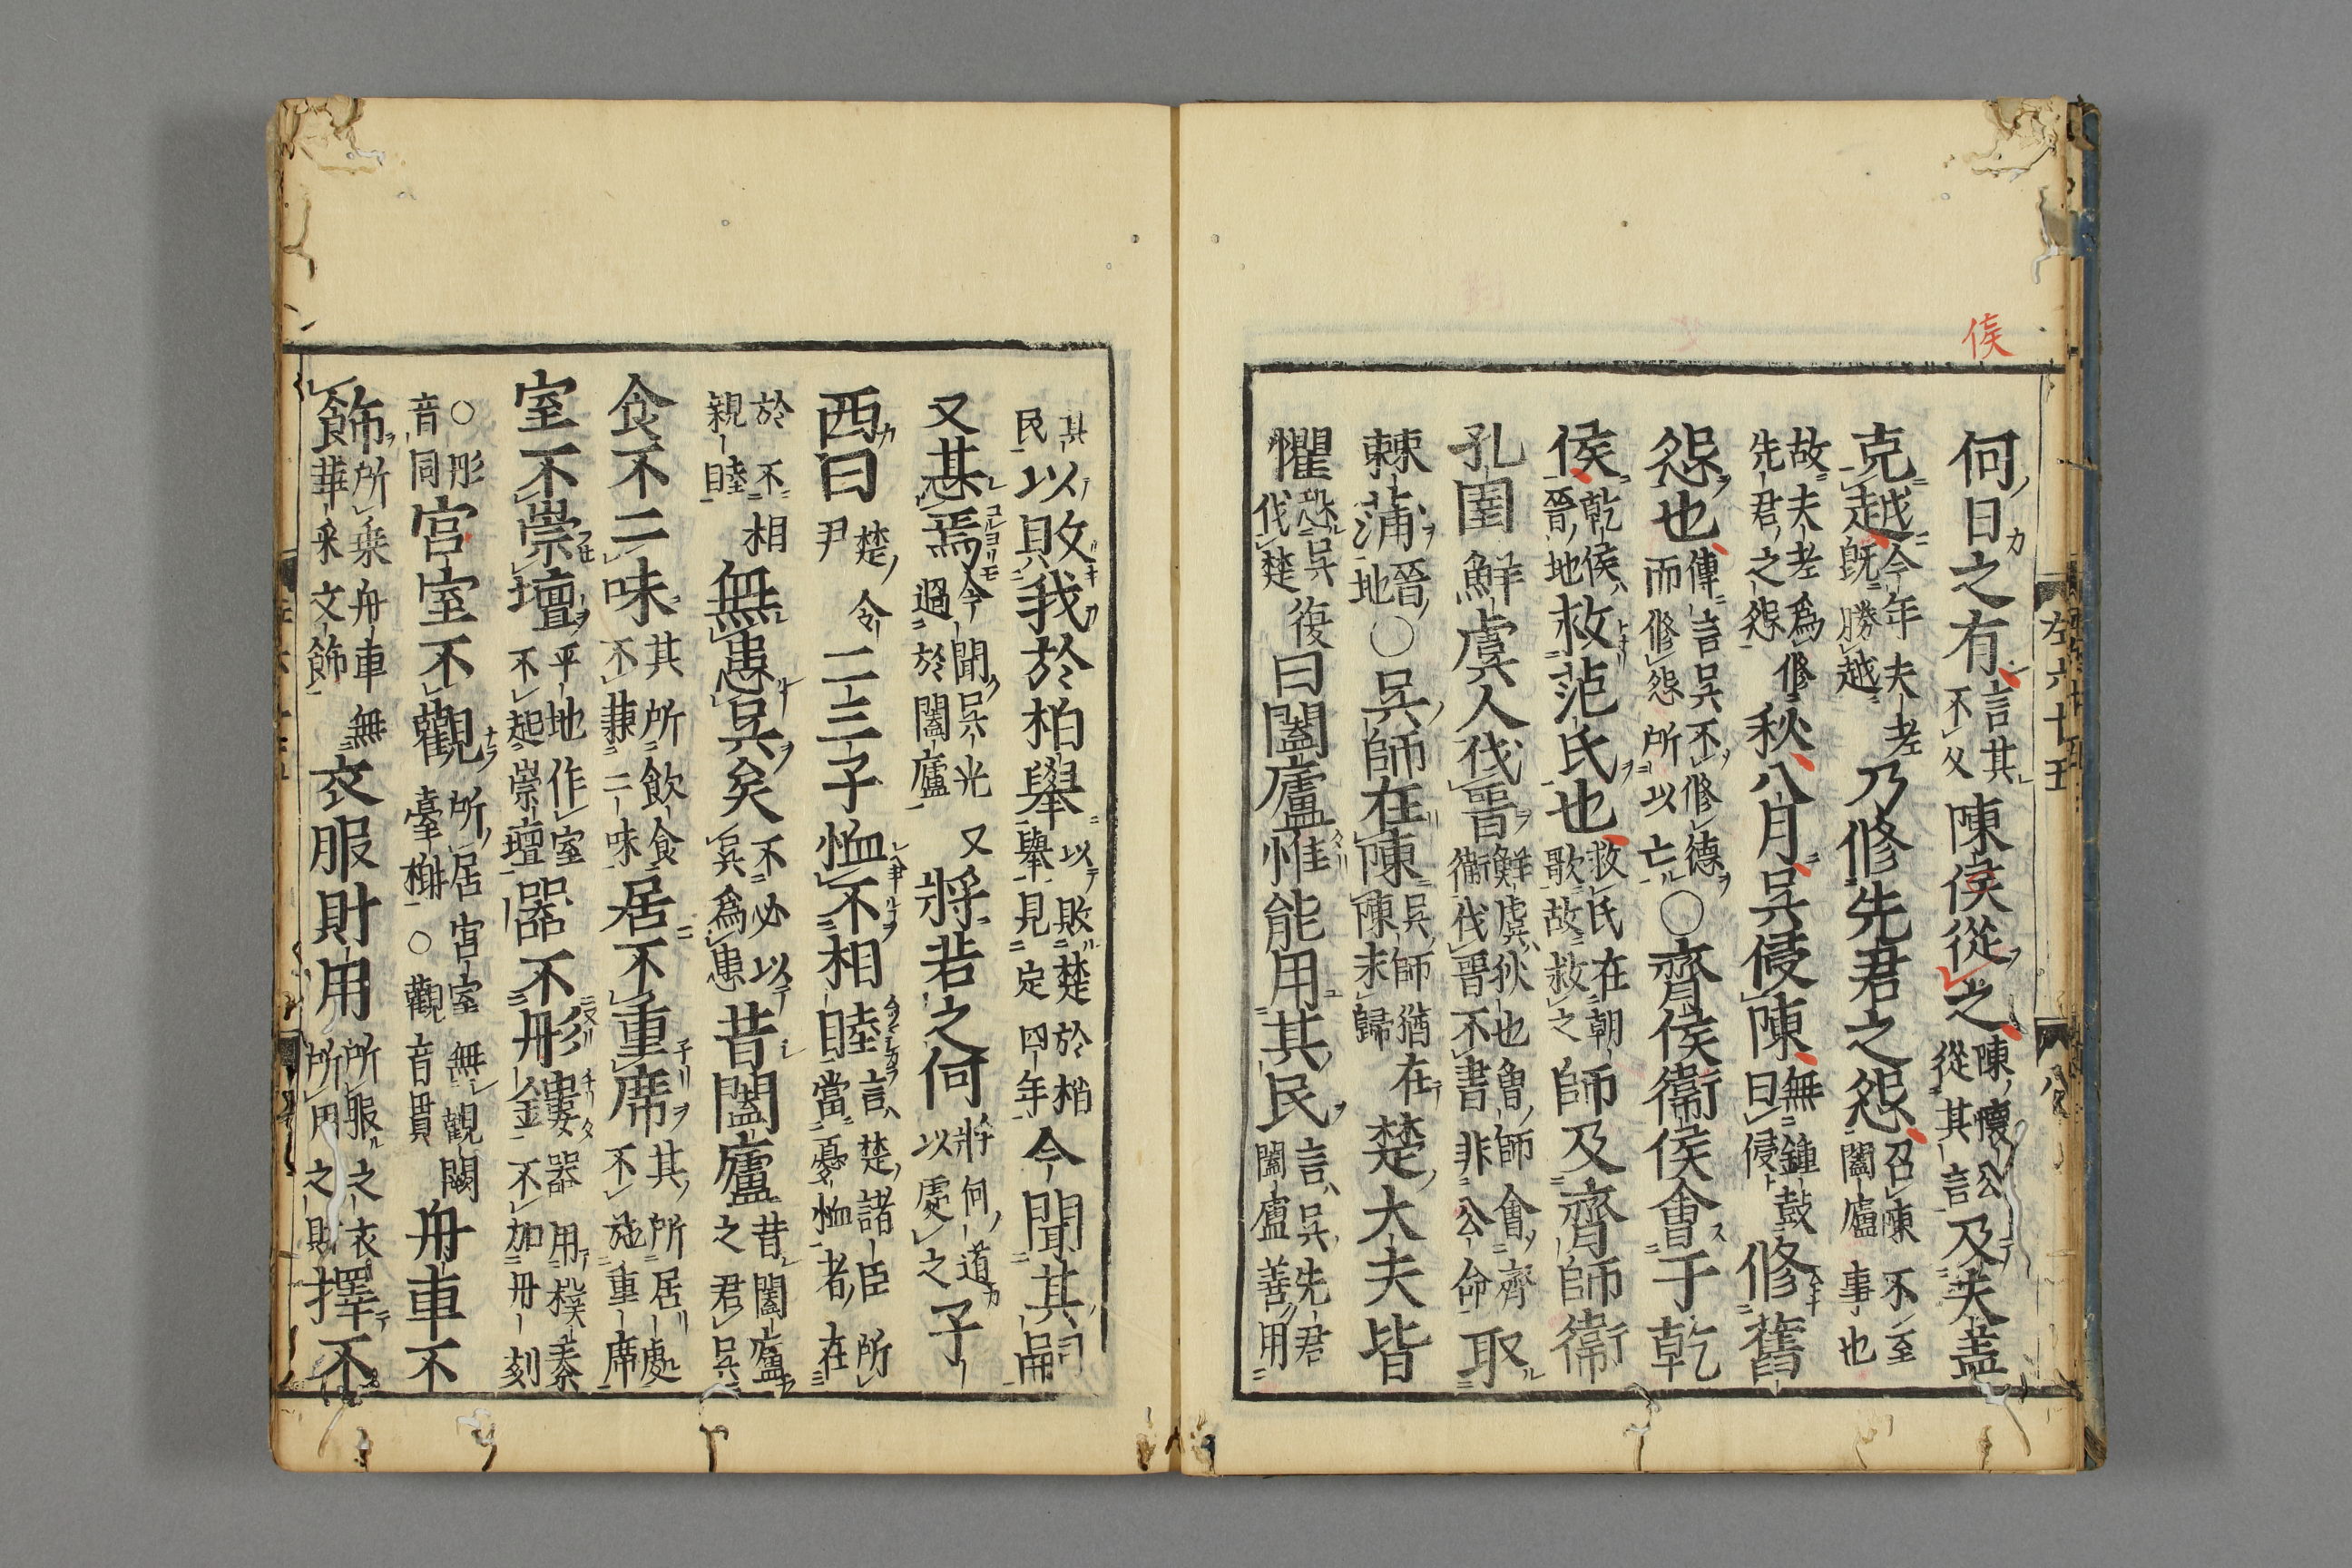 俟
何日之有言其不久陳侯從之陳懷公從其言及夫差
克越今年夫差既勝越乃修先君之怨召陳不至闔廬事也
故夫差爲修先君之怨秋八月吳侵陳無鍾鼓曰侵修舊
怨也傳言吳不修德而修怨所以亡○齊侯衛侯會于乾
侯乾侯晉地救范氏也救氏在朝歌故救之師及齊師衛
孔圉鮮虞人伐晉鮮虞狄也魯師會齊衛伐晉不書非公命取
棘蒲晉地○吳師在陳吳師猶在陳未歸楚大夫皆
懼恐吳復伐楚曰闔廬惟能用其民言吳先君闔廬善用
其民以敗我於柏舉以敗楚於柏舉見定四年今聞其嗣
又甚焉今聞吳光又過於闔廬將若之何將何道以處之子
西曰楚令尹二三子恤不相睦言楚諸臣所當憂恤者在
於不相親睦無患吳矣不必以吳爲患昔闔廬昔闔廬之君吳
食不二味其所飲食不兼二味居不重席其所居處不施重席
室不崇壇平地作室不起崇壇器不彤鏤器用樸素不加丹刻
○彤音同宮室不觀所居宮室無觀闕臺榭○觀音貫舟車不
飾所乗舟車無華采文飾衣服財用所服之衣所用之財擇不
左六十五
八